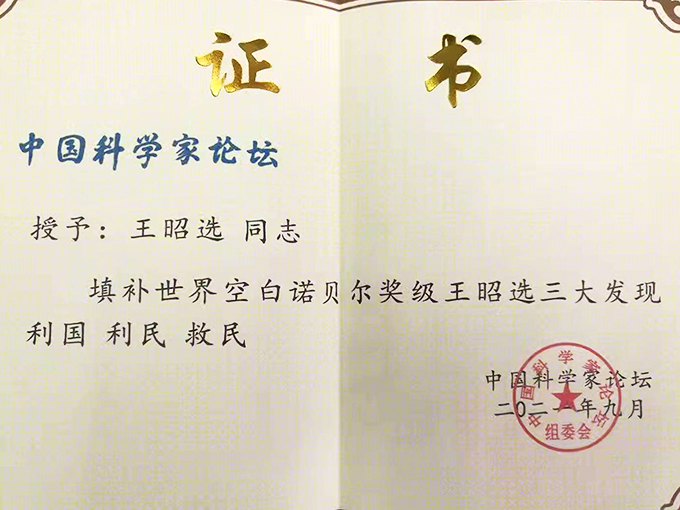 证 书
中国科学家论坛
授予：王昭选 同志
填补世界空白诺贝尔奖级王昭选三大发现
利国 利民 救民
中国科学家论坛
二〇二一年九月
中国科学家论坛
组委会